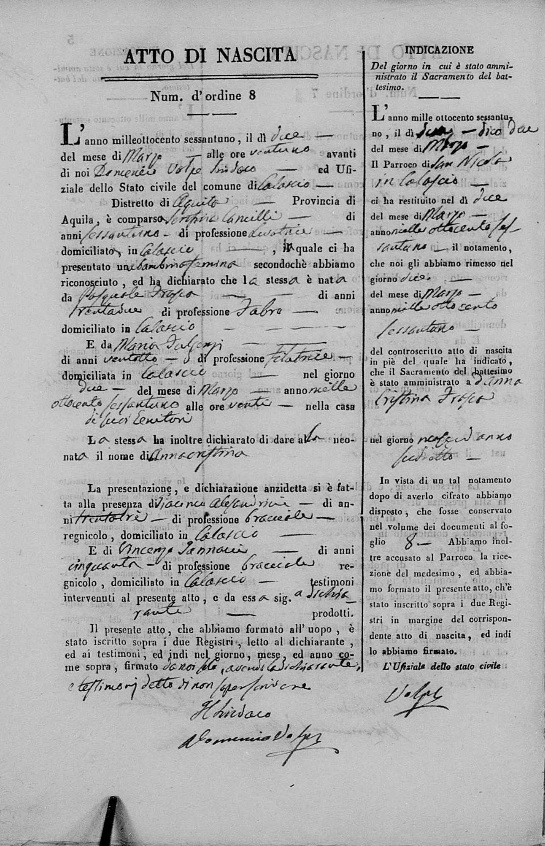 ATTO DI NASCITA
Num. d'ordine 8
L'anno milleottocento sessantuno, il dì due
del mese di Marzo alle ore ventuno avanti
di noi Domenico Volpe Sindaco ed Ufi-
ziale dello Stato civile del comune di Calascio
Distretto di Aquila Provincia di
Aquila, è comparsa di
anni sessantuno di professione
domiciliato, in Calascio, il quale ci ha
presentato una bambina femina secondochè abbiamo
riconosciuto, ed ha dichiarato che la stessa è nata
da Pasquale di anni
trentadue di professione Fabro
domiciliato in Calascio
E da Maria
di anni ventotto di professione Filatrice
domiciliata in Calascio nel giorno
due del mese di Marzo anno mille
ottocento sessantuno alle ore venti nella casa
di suoi Genitori
La stessa ha inoltre dichiarato di dare alla neo-
nata il nome di Annacristina
La presentazione, e dichiarazione anzidetta si è fat-
ta alla presenza di Giacinto di an-
ni trentatre di professione bracciale
regnicolo, domiciliato in Calascio
E di Vincenzo di anni
cinquanta di professione bracciale re-
gnicolo, domiciliato in Calascio testimoni
intervenuti al presente atto, e da essa sig.a dichia
rante prodotti.
Il presente atto, che abbiamo formato all'uopo, è
stato iscritto sopra i due Registri, letto al dichiarante,
ed ai testimoni, ed indi nel giorno, mese, ed anno co-
me sopra, firmato da noi solo, avendo la dichiarante,
e testimonj detto di non saper scrivere
Il Sindaco
Domenico Volpe
INDICAZIONE
Del giorno in cui è stato ammi-
nistrato il Sacramento del bat-
tesimo.
L'anno mille ottocento sessantu-
no, il dì dico due
del mese di Marzo
Il Parroco di San Nicola
in Calascio
ci ha restituito nel dì due
del mese di Marzo
anno mille ottocento ses
santuno il notamento,
che noi gli abbiamo rimesso nel
giorno due
del mese di Marzo
anno mille ottocento
sessantuno
del controscritto atto di nascita
in piè del quale ha indicato,
che il Sacramento del battesimo
è stato amministrato a d'Anna
Cristina
nel giorno anno
sudetto
In vista di un tal notamento
dopo di averlo cifrato abbiamo
disposto, che fosse conservato
nel volume dei documenti al fo-
glio 8 Abbiamo inol-
tre accusato al Parroco la rice-
zione del medesimo, ed abbia-
mo formato il presente atto, ch'è
stato inscritto sopra i due Regi-
stri in margine del corrispon-
dente atto di nascita, ed indi
lo abbiamo firmato.
L'Ufiziale dello stato civile
Volpe